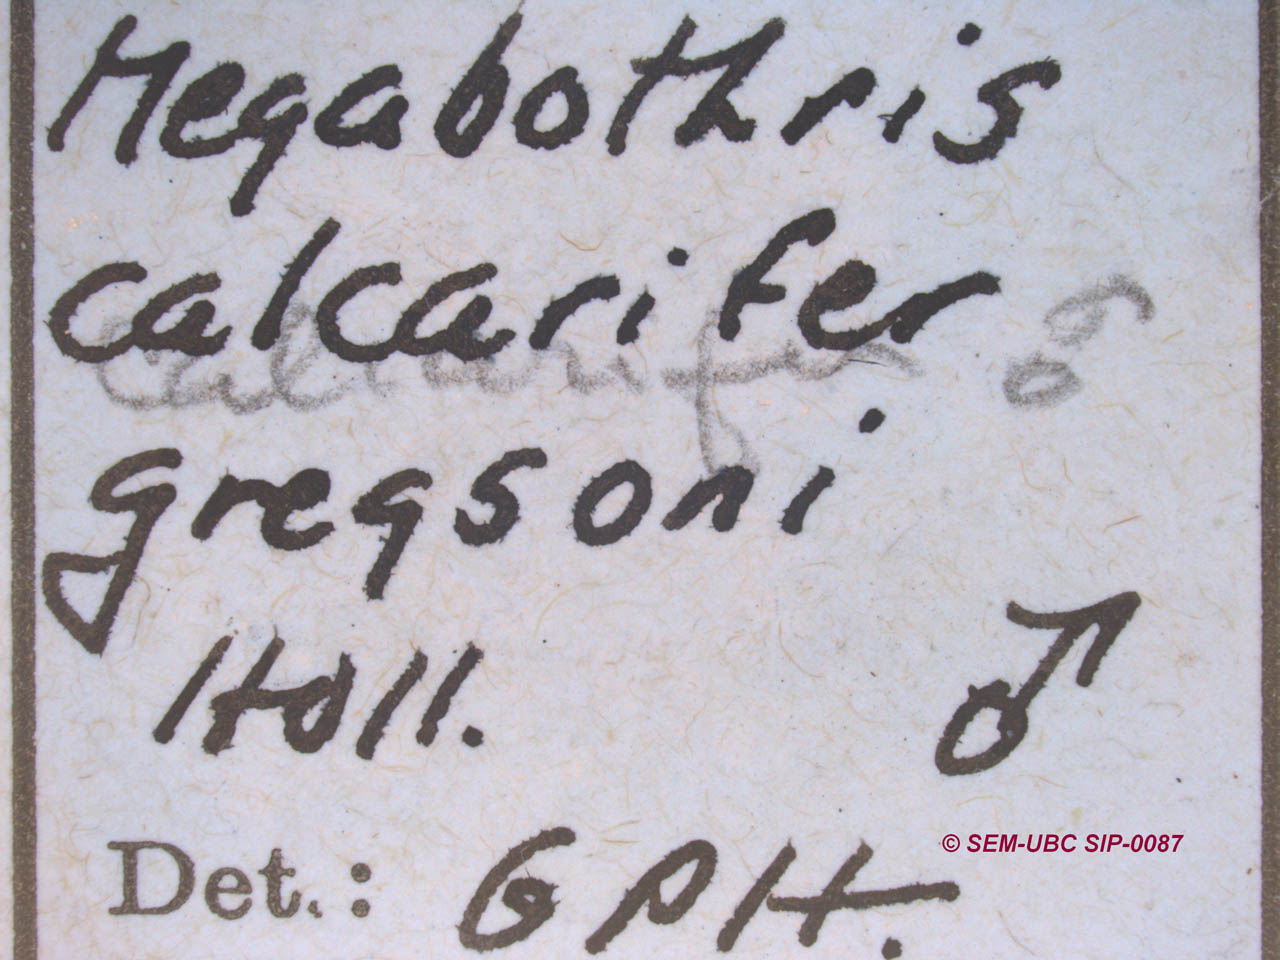 Megabothris
calcarifer
calcarifer ♂
gregsoni
Holl.
♂
© SEM-UBC SIP-0087
Det.: GPH.